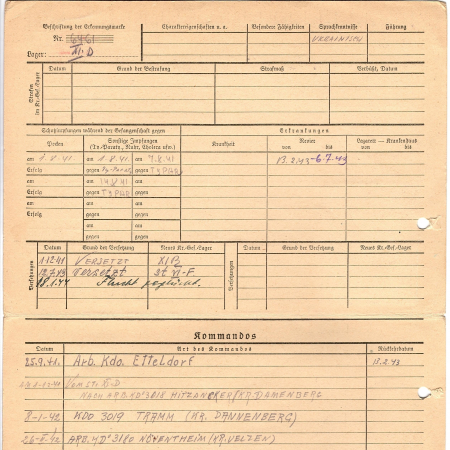 Beschriftung der Erkennungsmarke Charaktereigenschaften u. a. Besondere Fähigkeiten Sprachkenntnisse Führung
Nr. 6461 UKRAINISCH
Lager: VI. D
Strafen im Kr.-Gef.-Lager
Datum Grund der Bestrafung Strafmaß Verbüßt, Datum
Schutzimpfungen während der Gefangenschaft gegen Erkrankungen
Pocken Sonstige Impfungen (Ty.-Paraty., Ruhr, Cholera usw.) Krankheit Revier von bis Lazarett – Krankenhaus von bis
am 7.8.41 am 1.8.41 am 7.8.41 13.2.43-6.7.43
Erfolg gegen Ty.-Parat. gegen TYPHO
am am 14.8.41 am
Erfolg gegen TYPHO gegen
am am am
Erfolg gegen gegen
am am
gegen gegen
Versetzungen
Datum Grund der Versetzung Neues Kr.-Gef.-Lager Datum Grund der Versetzung Neues Kr.-Gef.-Lager
1.12.41 VERSETZT XI B
12.7.43 Versetzt St VI-F
18.1.44 Flucht geglückt.
Kommandos
Datum Art des Kommandos Rückkehrdatum
25.9.41. Arb. Kdo. Etteldorf 12.2.43
Vom St. VI-D
NACH ARB. KD° 3018 HITZACKER/KR. DANNENBERG
8-1-42 KDO 3019 TRAMM (KR. DANNENBERG)
26-II-42 ARB. KD° 3180 (KR. UELZEN)